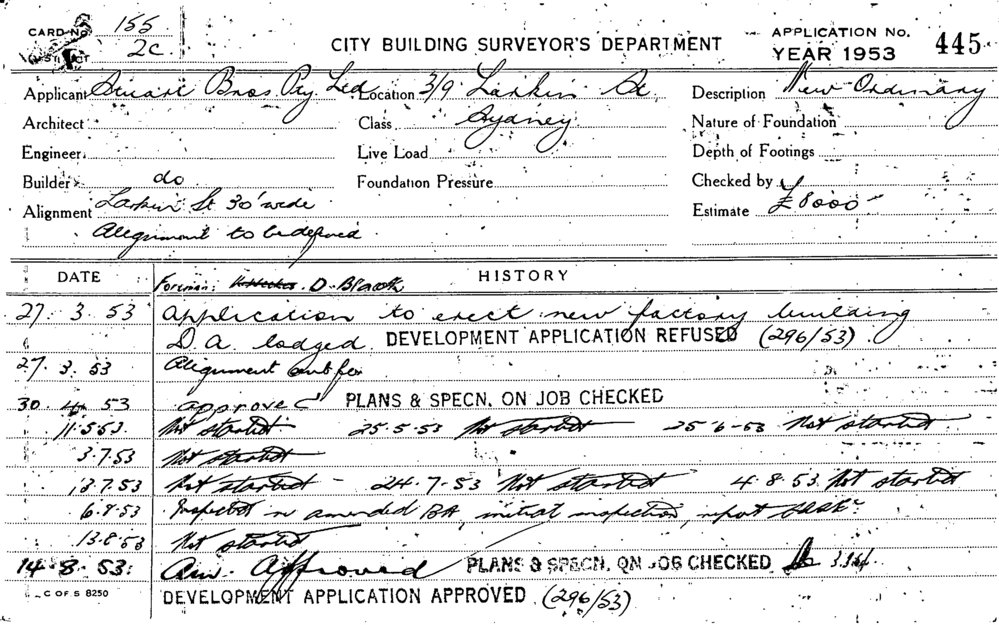 CARD No. 155
DISTRICT 2C
CITY BUILDING SURVEYOR'S DEPARTMENT
APPLICATION No. 445
YEAR 1953
Applicant Stuart Bros Pty Ltd Location 3/9 Larkin St. Description New Ordinary
Architect Class Sydney Nature of Foundation
Engineer Live Load Depth of Footings
Builder do Foundation Pressure Checked by
Alignment Larkin St 30' wide Estimate £8000
Alignment to be defined
DATE HISTORY
Foreman: D. Black
27. 3. 53 Application to erect new factory building
D.A. lodged. DEVELOPMENT APPLICATION REFUSED (296/53)
27. 3. 53 Alignment
30. 4. 53 approved PLANS & SPECN. ON JOB CHECKED
11.5.53 Not started 25.5.53 Not started 25-6-53 Not started
3.7.53 Not started
13.7.53 Not started - 24.7.53 Not started 4.8.53. Not started
6.8.53 Inspected amended BA, initial inspection, report
13.8.53 Not started
14.8.53. Approved PLANS & SPECN. ON JOB CHECKED
C OF S 8250 DEVELOPMENT APPLICATION APPROVED (296/53)